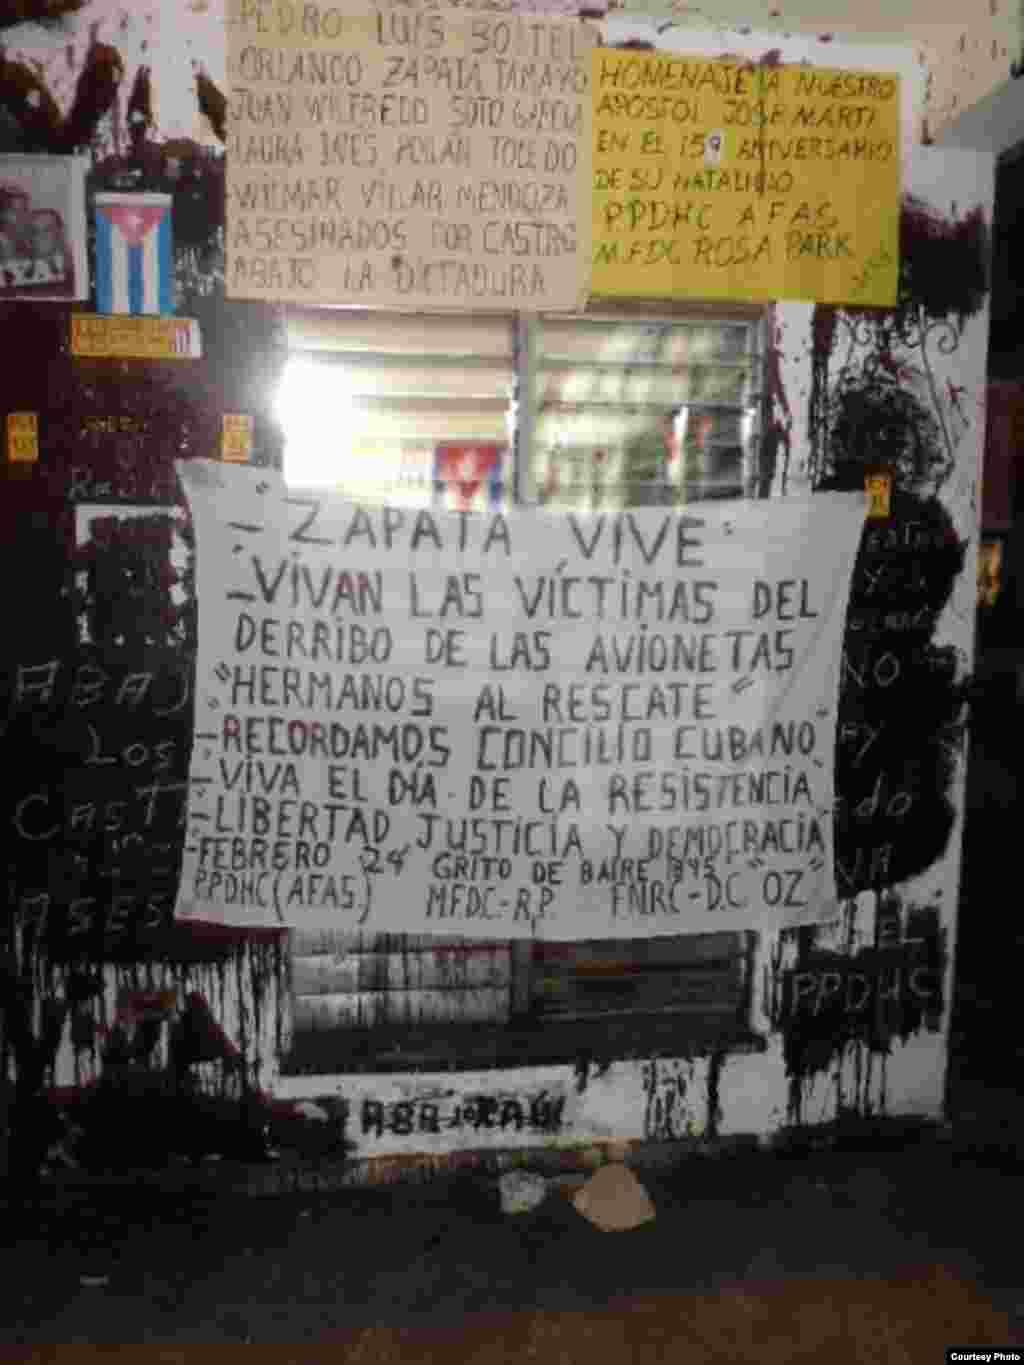 PEDRO LUIS BOITEL
ORLANDO ZAPATA TAMAYO
JUAN WILFREDO SOTO GARCIA
LAURA INES POLLAN TOLEDO
WILMAR VILLAR MENDOZA
ASESINADOS POR CASTRO
ABAJO LA DICTADURA
HOMENAJE A NUESTRO
APOSTOL JOSE MARTI
EN EL 159 ANIVERSARIO
DE SU NATALICIO
PPDHC AFAS
MFDC ROSA PARK
YA!
- ZAPATA VIVE
- VIVAN LAS VÍCTIMAS DEL
DERRIBO DE LAS AVIONETAS
"HERMANOS AL RESCATE"
- RECORDAMOS CONCILIO CUBANO
- VIVA EL DÍA DE LA RESISTENCIA
- LIBERTAD JUSTICIA Y DEMOCRACIA
- FEBRERO 24 GRITO DE BAIRE 1895
PPDHC (AFAS) MFDC-R.P. FNRC-D.C "OZ"
ABAJ
LOS
CAST
ASES
NO
VA
EL
PPDHC
Courtesy Photo